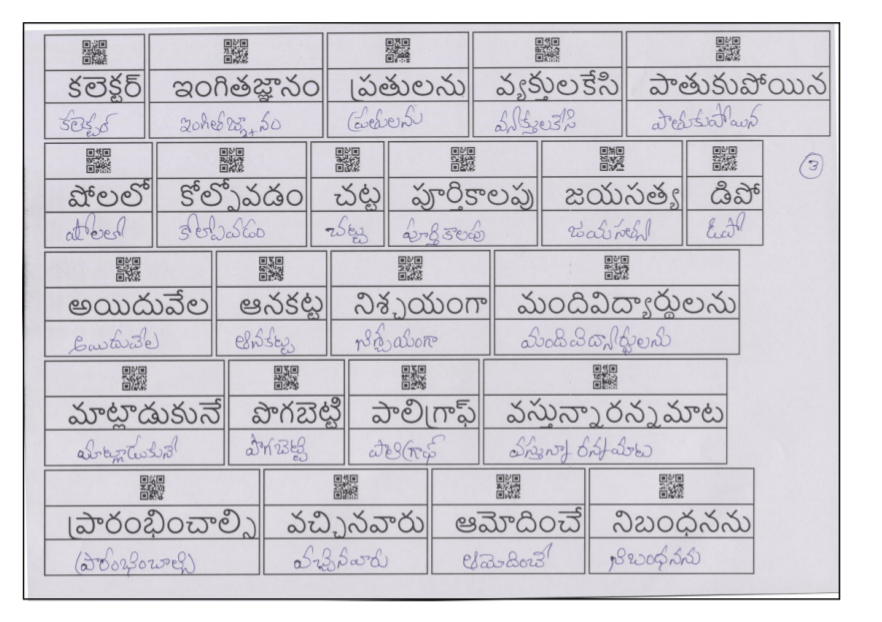 కలెక్టర్ ఇంగితజ్ఞానం ప్రతులను వ్యక్తులకేసి పాతుకుపోయిన
కలెక్టర్ ఇంగితజ్ఞానం ప్రతులను వ్యక్తులకేసి పాతుకుపోయిన
3
షోలలో కోల్పోవడం చట్ట పూర్తికాలపు జయసత్య డిపో
షోలలో కోల్పోవడం చట్ట పూర్తికాలపు జయసత్య డిపో
అయిదువేల ఆనకట్ట నిశ్చయంగా మందివిద్యార్థులను
అయిదువేల ఆనకట్ట నిశ్చయంగా మందివిద్యార్థులను
మాట్లాడుకునే పొగబెట్టి పాలిగ్రాఫ్ వస్తున్నారన్నమాట
మాట్లాడుకునే పొగబెట్టి పాలిగ్రాఫ్ వస్తున్నారన్నమాట
ప్రారంభించాల్సి వచ్చినవారు ఆమోదించే నిబంధనను
ప్రారంభించాల్సి వచ్చినవారు ఆమోదించే నిబంధనను